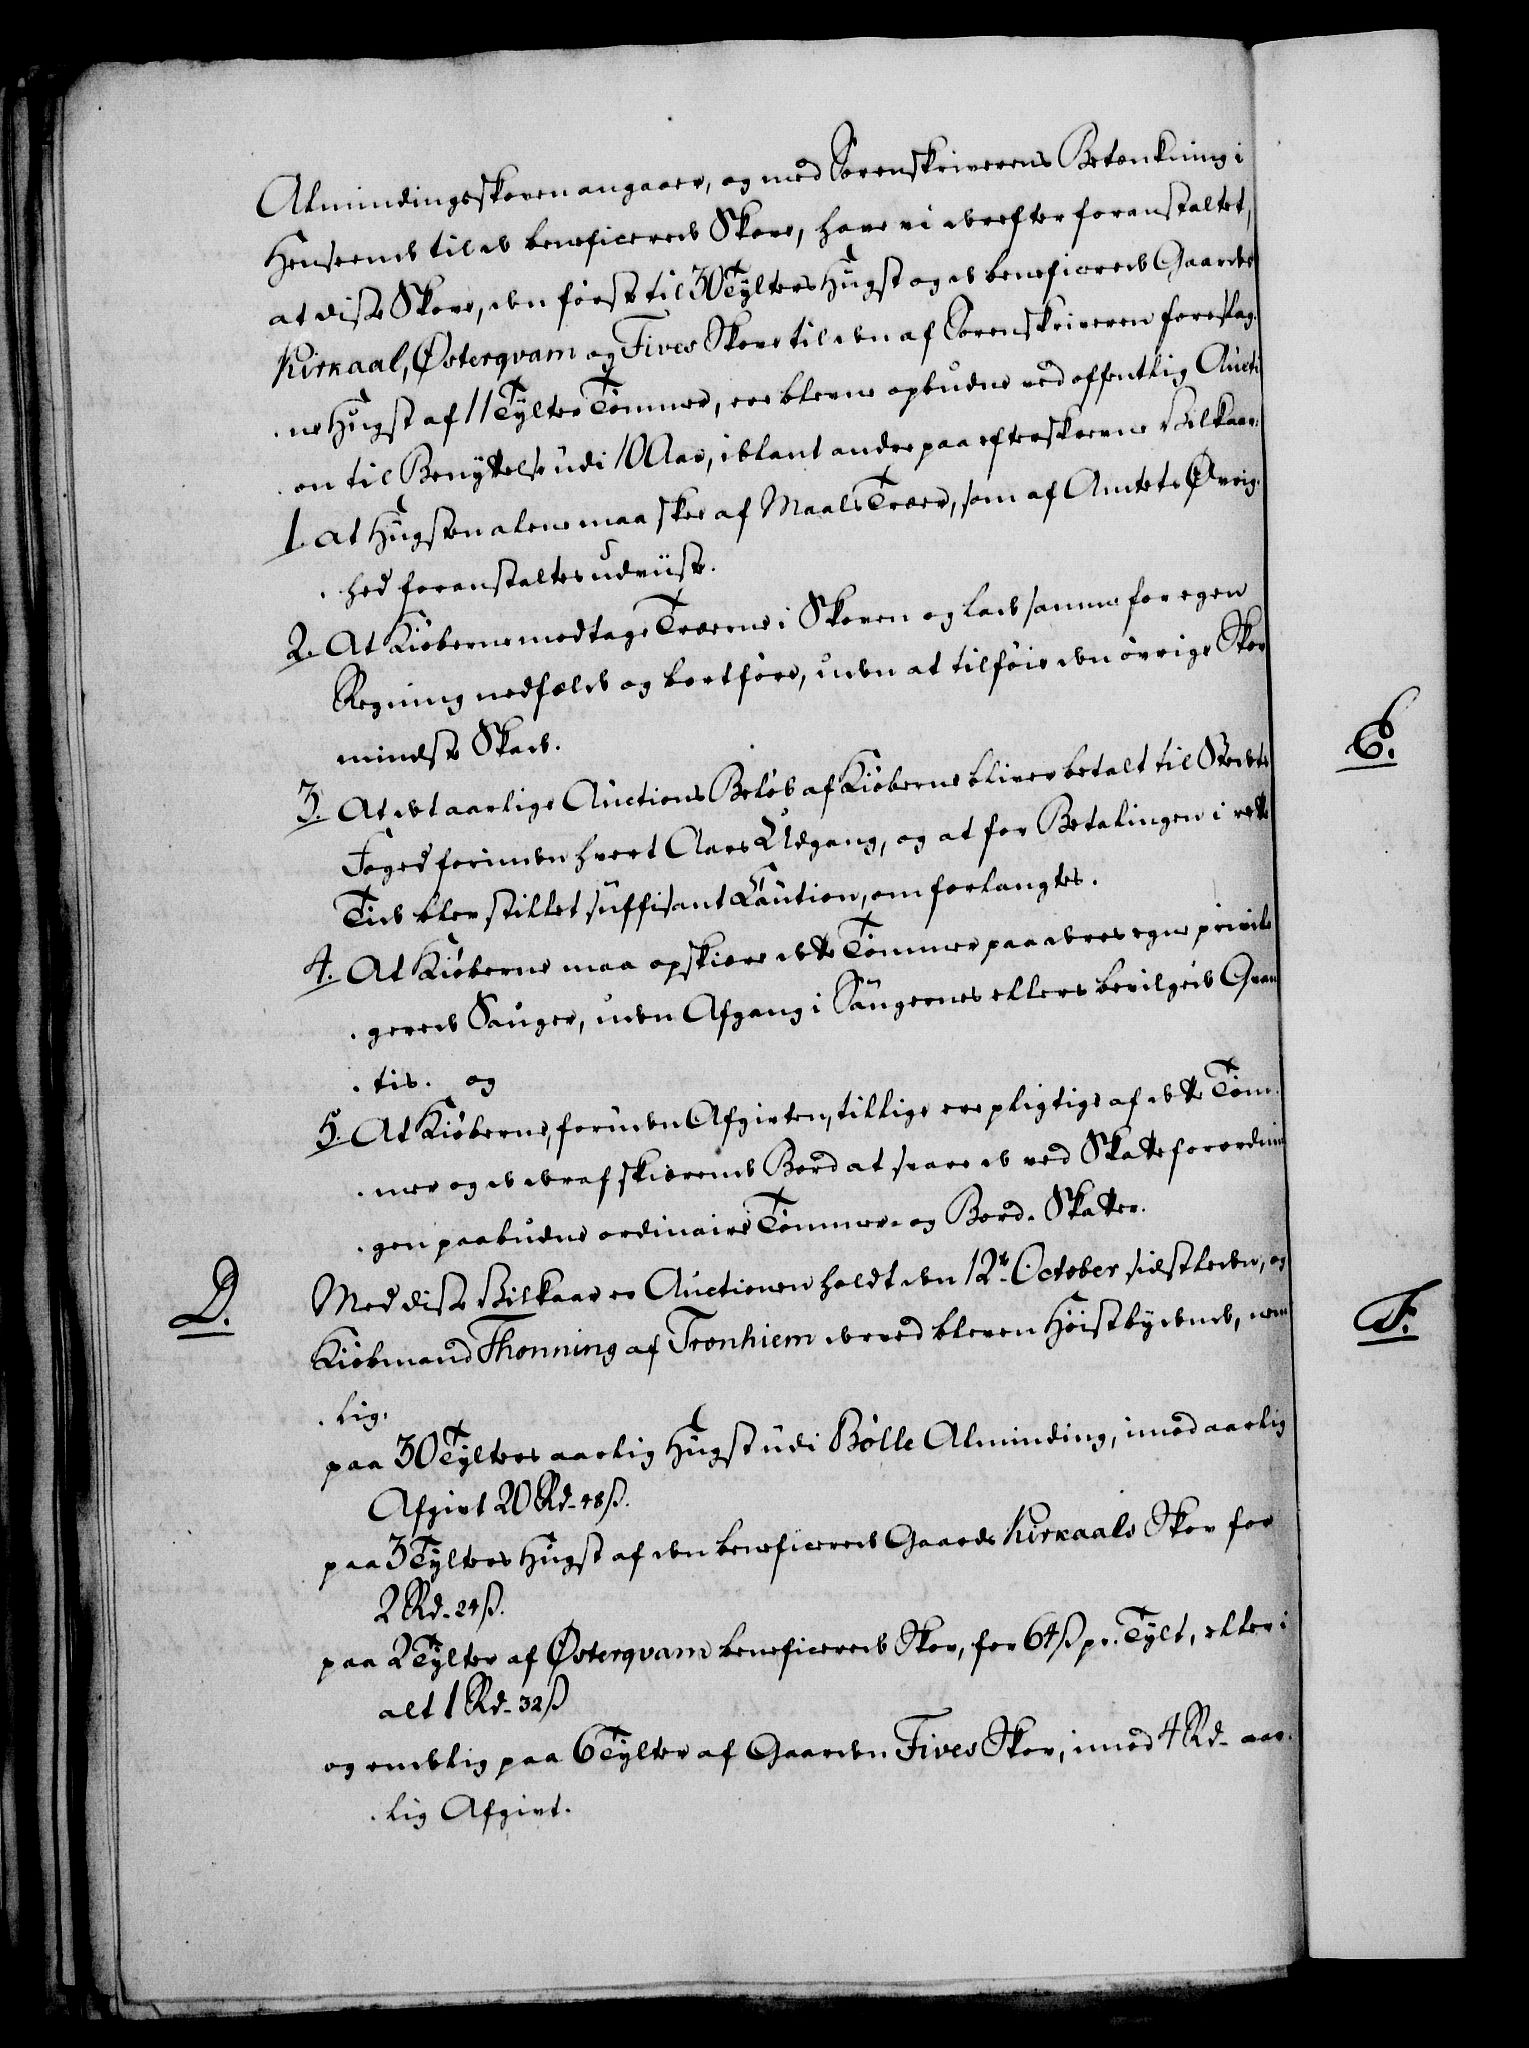 Almindingsskoven angaaer, og med Sorenskriverens Betænkning i
Henseende til de beneficerede Skove, have vi derefter foranstaltet,
at disse Skove, den første til 30 Tylters Hugst og de beneficerede Gaarde
Kirkaal, Østerqvam og Fives Skove til den af Sorenskriveren foreslag-
ne Hugst af 11 Tylter Tømmer, ere blevne opbudne ved offentlig Aucti-
on til Benyttelse udi 10 Aar, iblant andre paa efterskrevne Vilkaar:
1. at Hugsten alene maa skee af Maals Træer, som af Amtets Øvrig-
hed foranstaltes udviist.
2. At Kiøberne modtage Træerne i Skoven og lade samme for egen
Regning nedfælde og bortføre, uden at tilføie den øvrige Skov
mindste Skade.
3. At det aarlige Auctions Beløb af Kiøberne bliver betalt til Stedets
Foged forinden hvert Aars Udgang, og at for Betalingen i rette
Tid blev stillet suffisant Caution, om forlangtes.
4. At Kiøberne maa opskiære dette Tømmer paa deres egne privile-
gerede Sauger, uden Afgang i Saugernes ellers bevilgede Qvan-
tis. og
5. At Kiøberne, foruden Afgivten, tillige ere pligtige af dette Tøm-
mer og de deraf skiærende Bord at svare de ved Skatteforordnin-
gen paabudne ordinaire Tømmer- og Bord-Skatter.
D. Med disse Vilkaar er Auctionen holdt den 12te October sidstleden, og
Kiøbmand Thonning af Tronhiem derved bleven Høistbydende, nem-
lig.
paa 30 Tylters aarlig Hugst udi Bølle Alminding, imod aarlig
Afgivt 20 Rd. 48 ß.
paa 3 Tylters Hugst af den beneficerede Gaards Kirkaals Skov for
2 Rd. 24 ß.
paa 2 Tylter af Østerqvam beneficerede Skov, for 64 ß pr. Tylt, eller i
alt 1 Rd. 32 ß
og endelig paa 6 Tylter af Gaarden Fives Skov, imod 4 Rd. aar-
lig Afgivt.
E.
F.